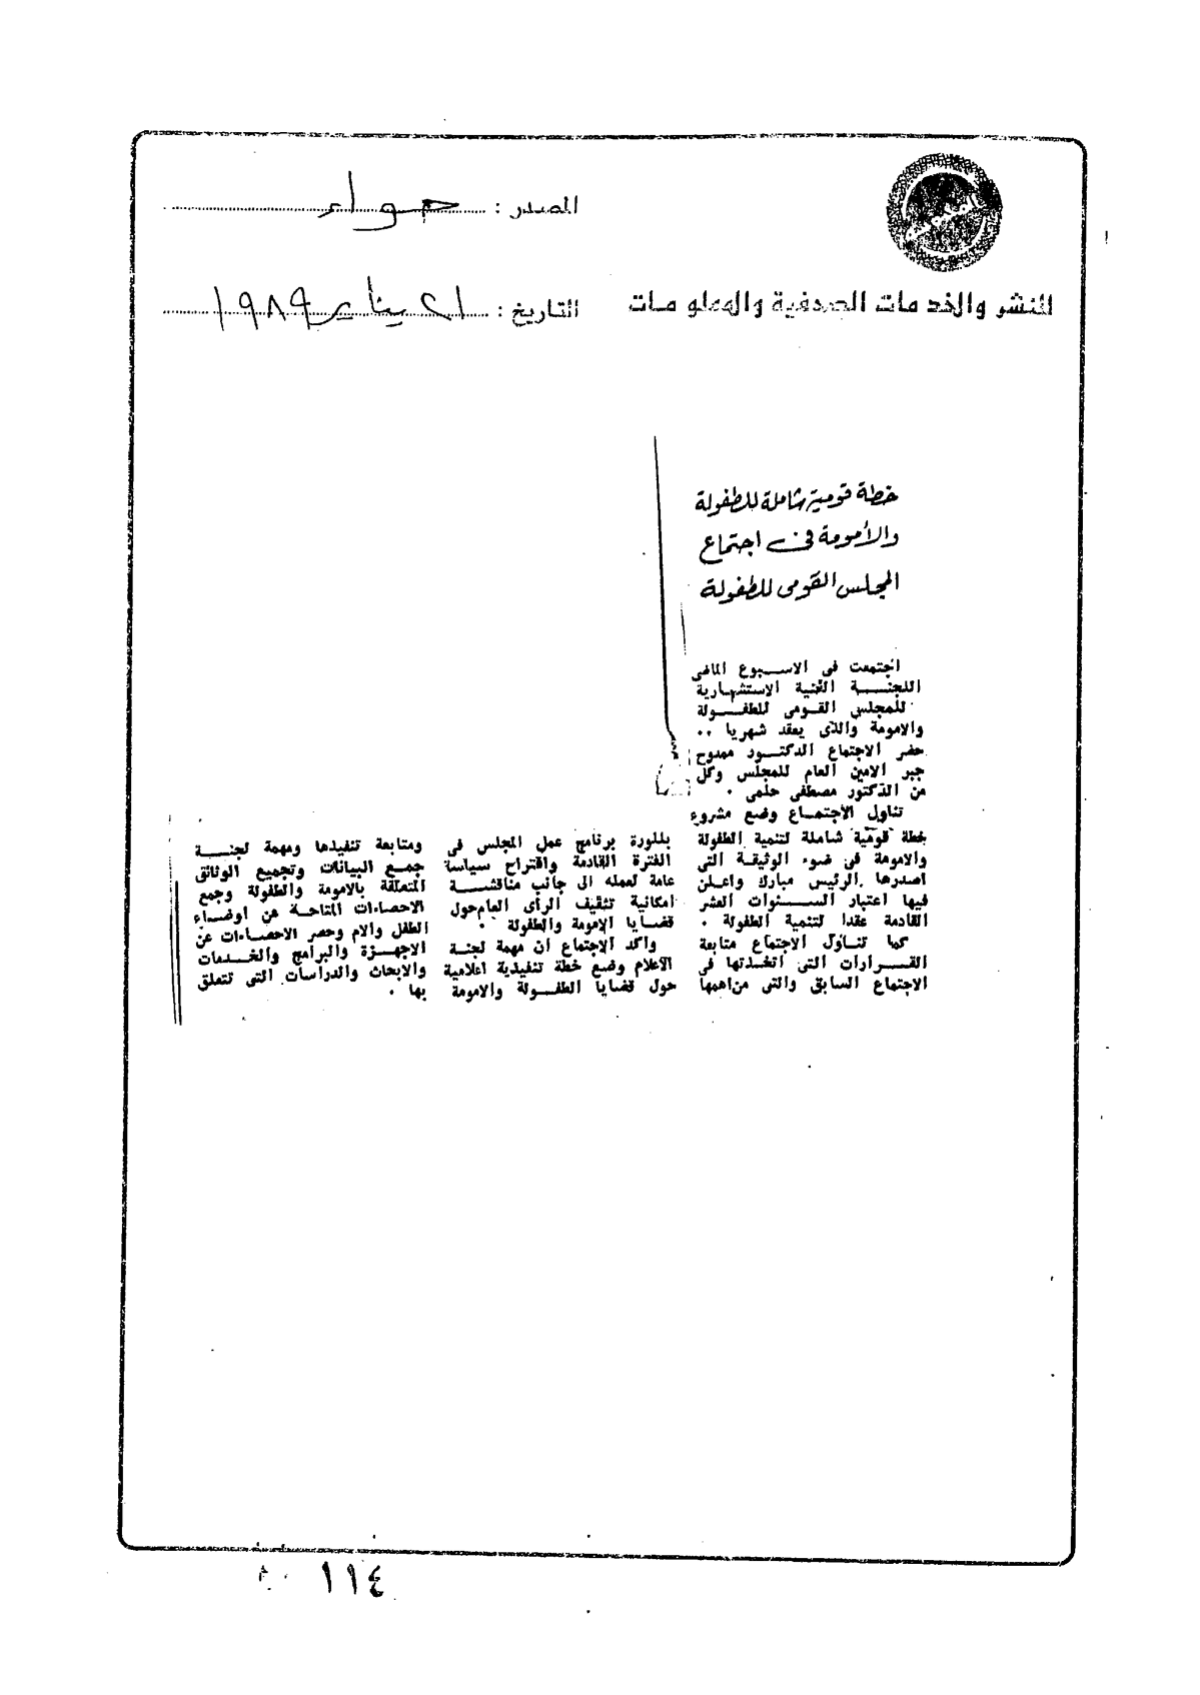 المصدر : حواء
للنشر والخدمات الصحفية والمعلومات
التاريخ : ٢١ يناير ١٩٨٩
خطة قومية شاملة للطفولة
والأمومة فى اجتماع
المجلس القومى للطفولة
اجتمعت فى الاسبوع الماضى
اللجنة الفنية الاستشارية
للمجلس القومى للطفولة
والامومة والذى يعقد شهريا ..
حضر الاجتماع الدكتور ممدوح
جبر الامين العام للمجلس وكل
من الدكتور مصطفى حلمى .
تناول الاجتماع وضع مشروع
خطة قومية شاملة لتنمية الطفولة
والامومة فى ضوء الوثيقة التى
اصدرها الرئيس مبارك واعلن
فيها اعتبار السنوات العشر
القادمة عقدا لتنمية الطفولة .
كما تناول الاجتماع متابعة
القرارات التى اتخذتها فى
الاجتماع السابق والتى من اهمها
بللورة برنامج عمل المجلس فى
الفترة القادمة واقتراح سياسة
عامة لعمله الى جانب مناقشة
امكانية تثقيف الرأى العام حول
قضايا الامومة والطفولة .
واكد الاجتماع ان مهمة لجنة
الاعلام وضع خطة تنفيذية اعلامية
حول قضايا الطفولة والامومة
ومتابعة تنفيذها ومهمة لجنة
جمع البيانات وتجميع الوثائق
المتعلقة بالامومة والطفولة وجمع
الاحصاءات المتاحة عن اوضاع
الطفل والام وحصر الاحصاءات عن
الاجهزة والبرامج والخدمات
والابحاث والدراسات التى تتعلق
بها .
١١٤